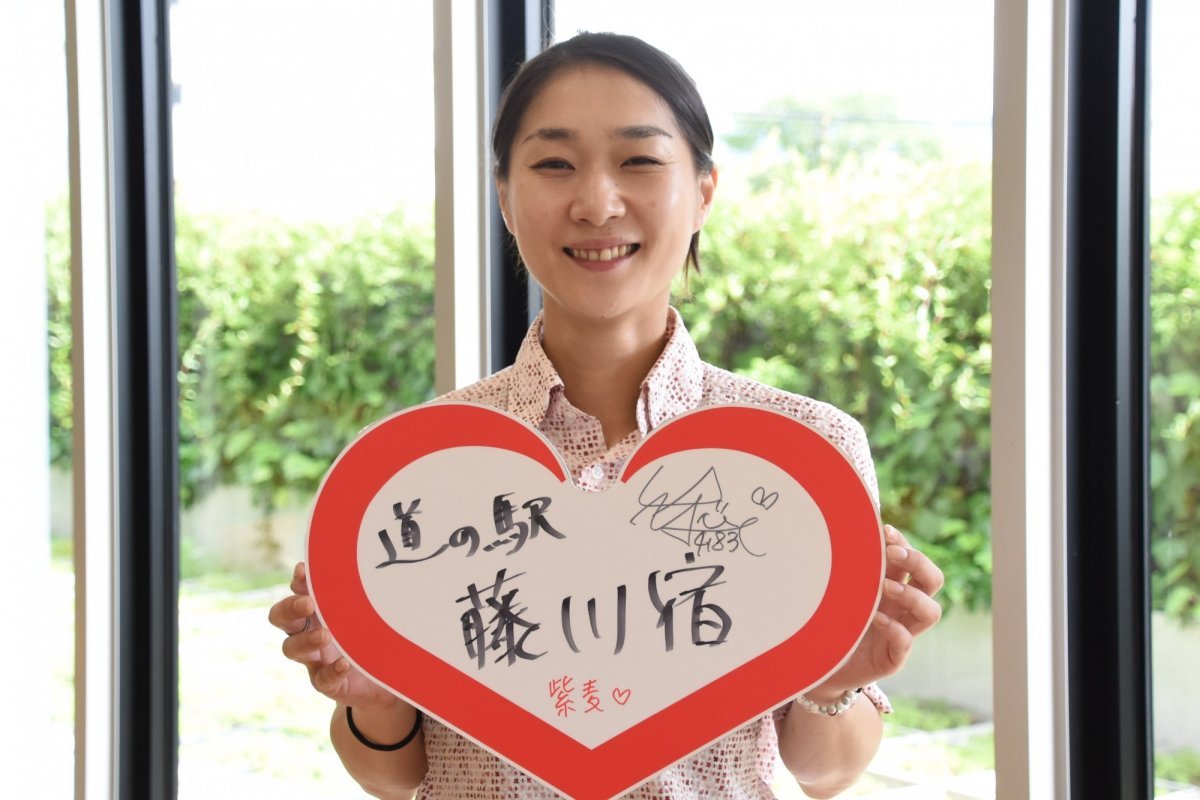 道の駅
4183
藤川宿
紫麦♡